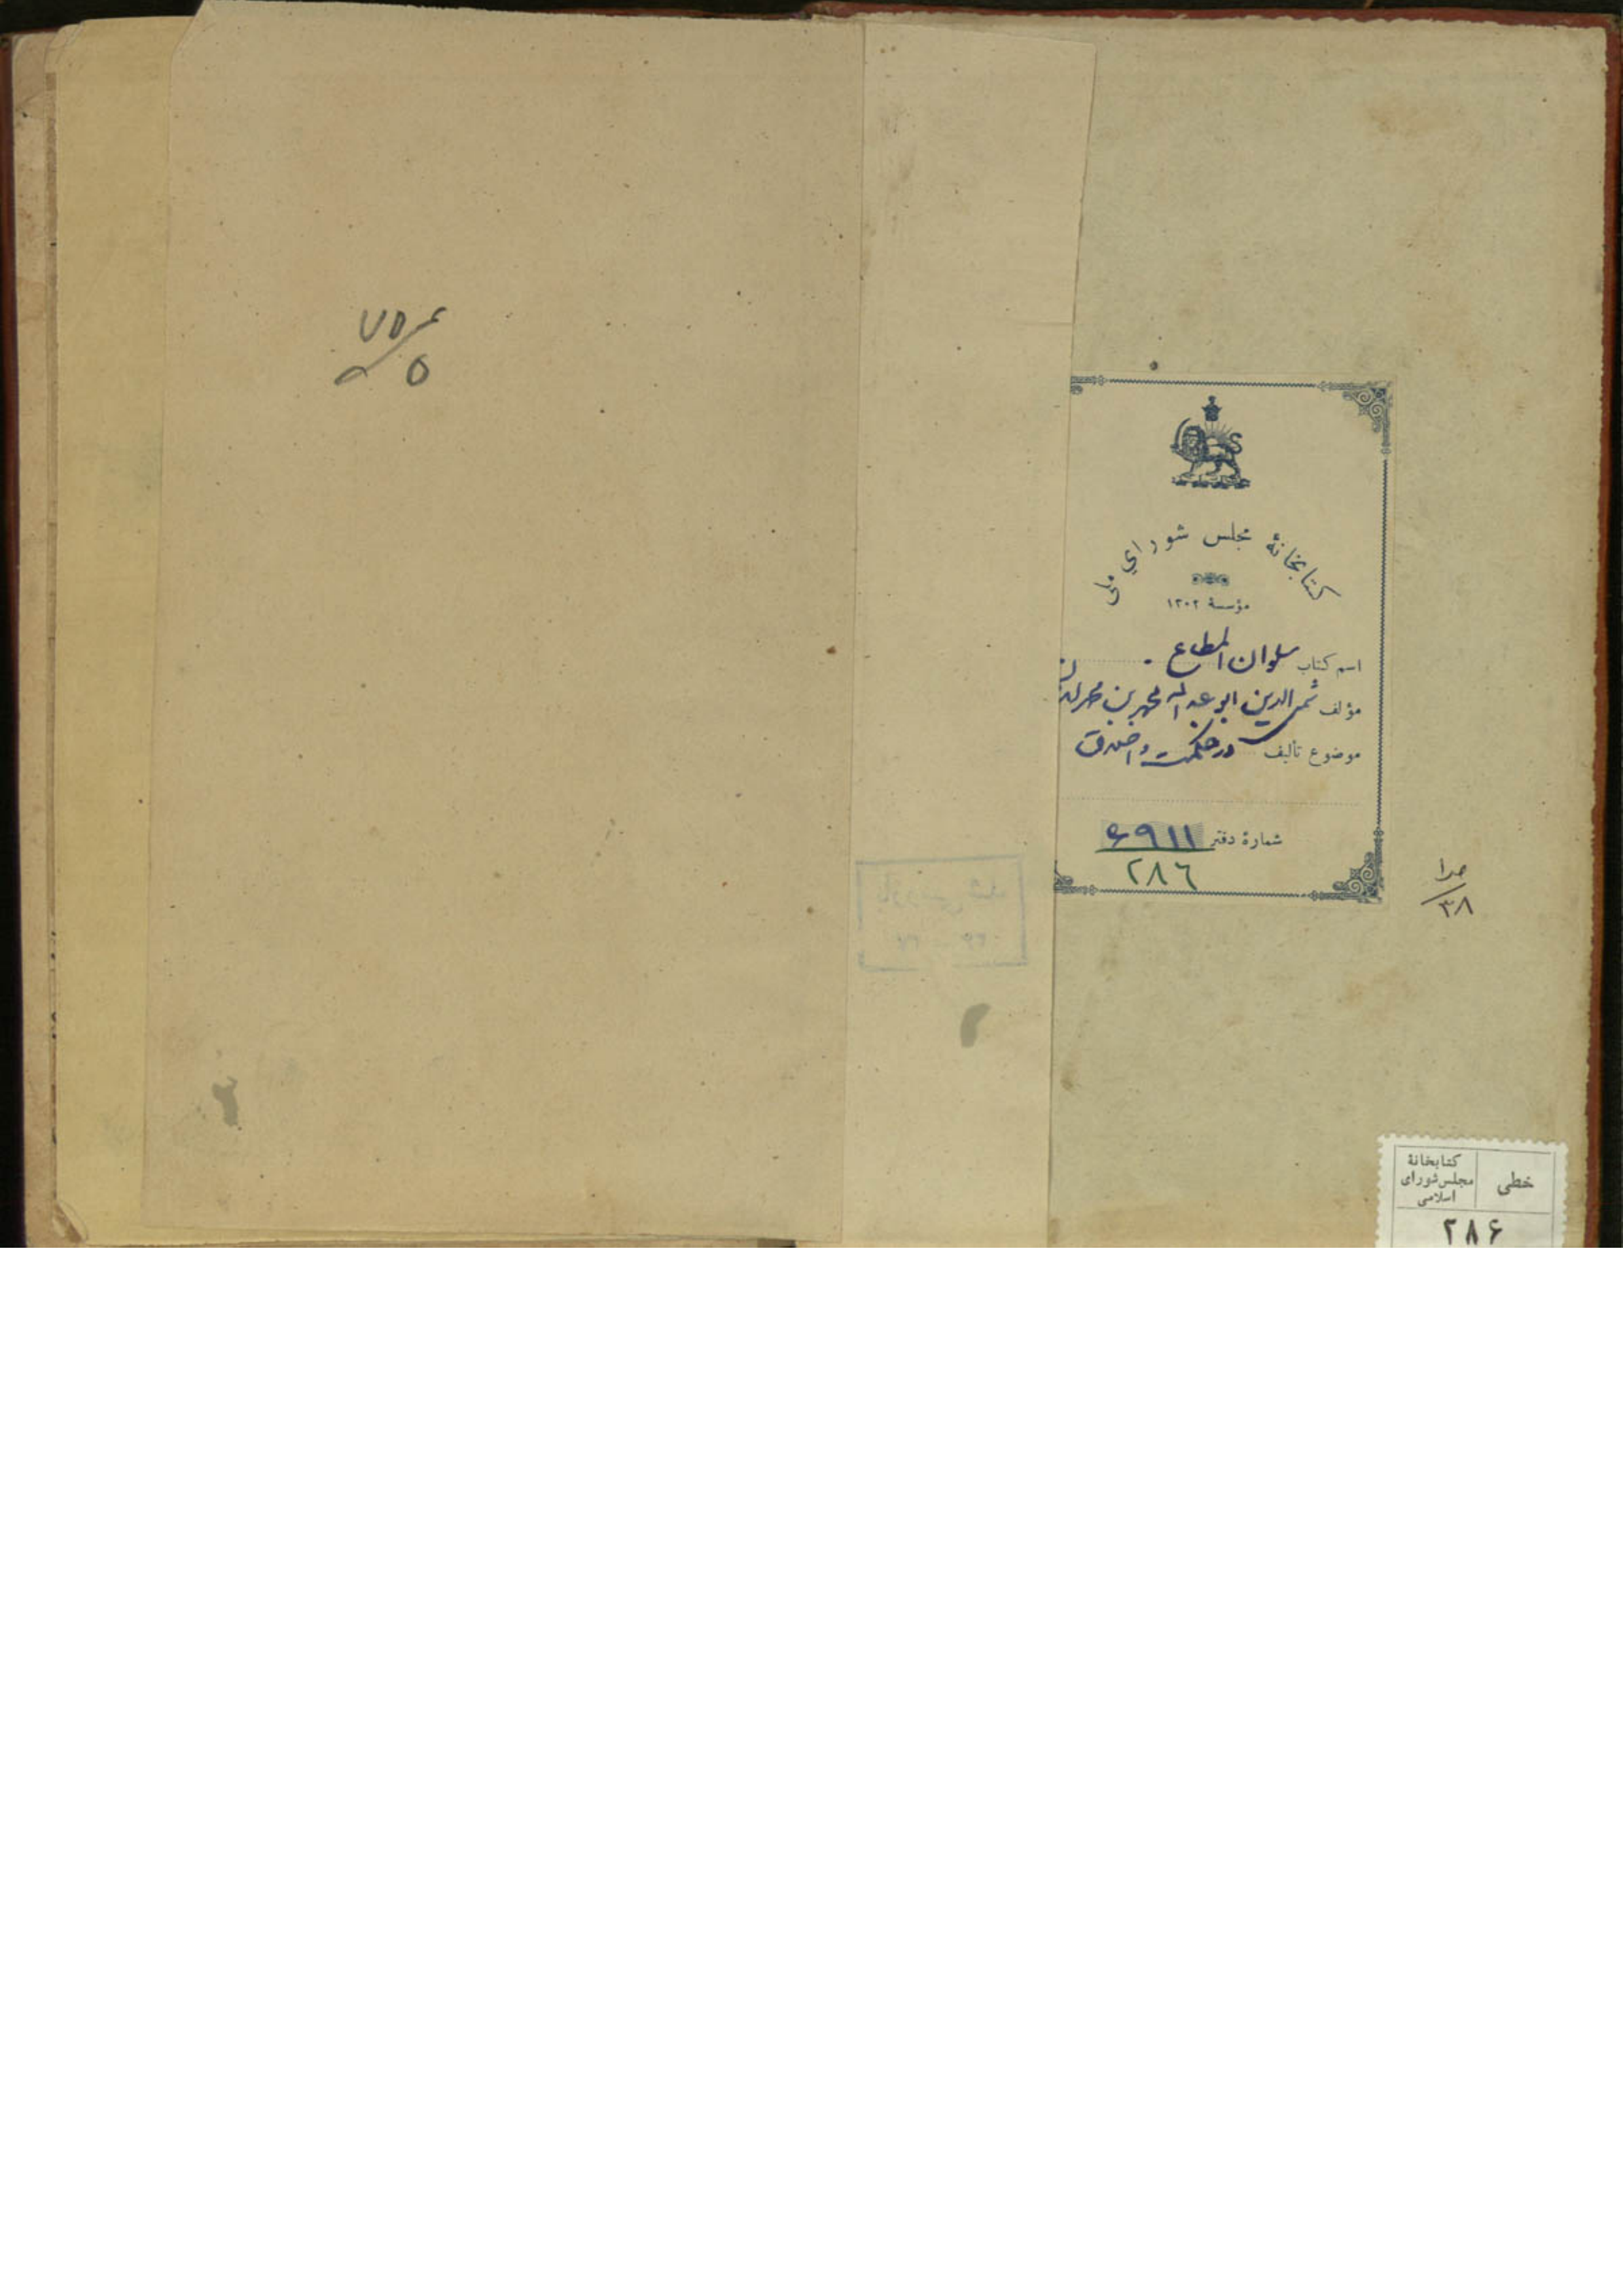 کتابخانهٔ مجلس شورای ملی
مؤسسهٔ ۱۳۰۲
اسم کتاب سلوان المطاع
مؤلف شمس الدین ابو عبد الله محمد بن محمد
موضوع تألیف در حکمت و اخلاق
شمارهٔ دفتر ۶۹۱۱
۲۸۶
۳۸
خطی
کتابخانهٔ
مجلس شورای
اسلامی
۲۸۶